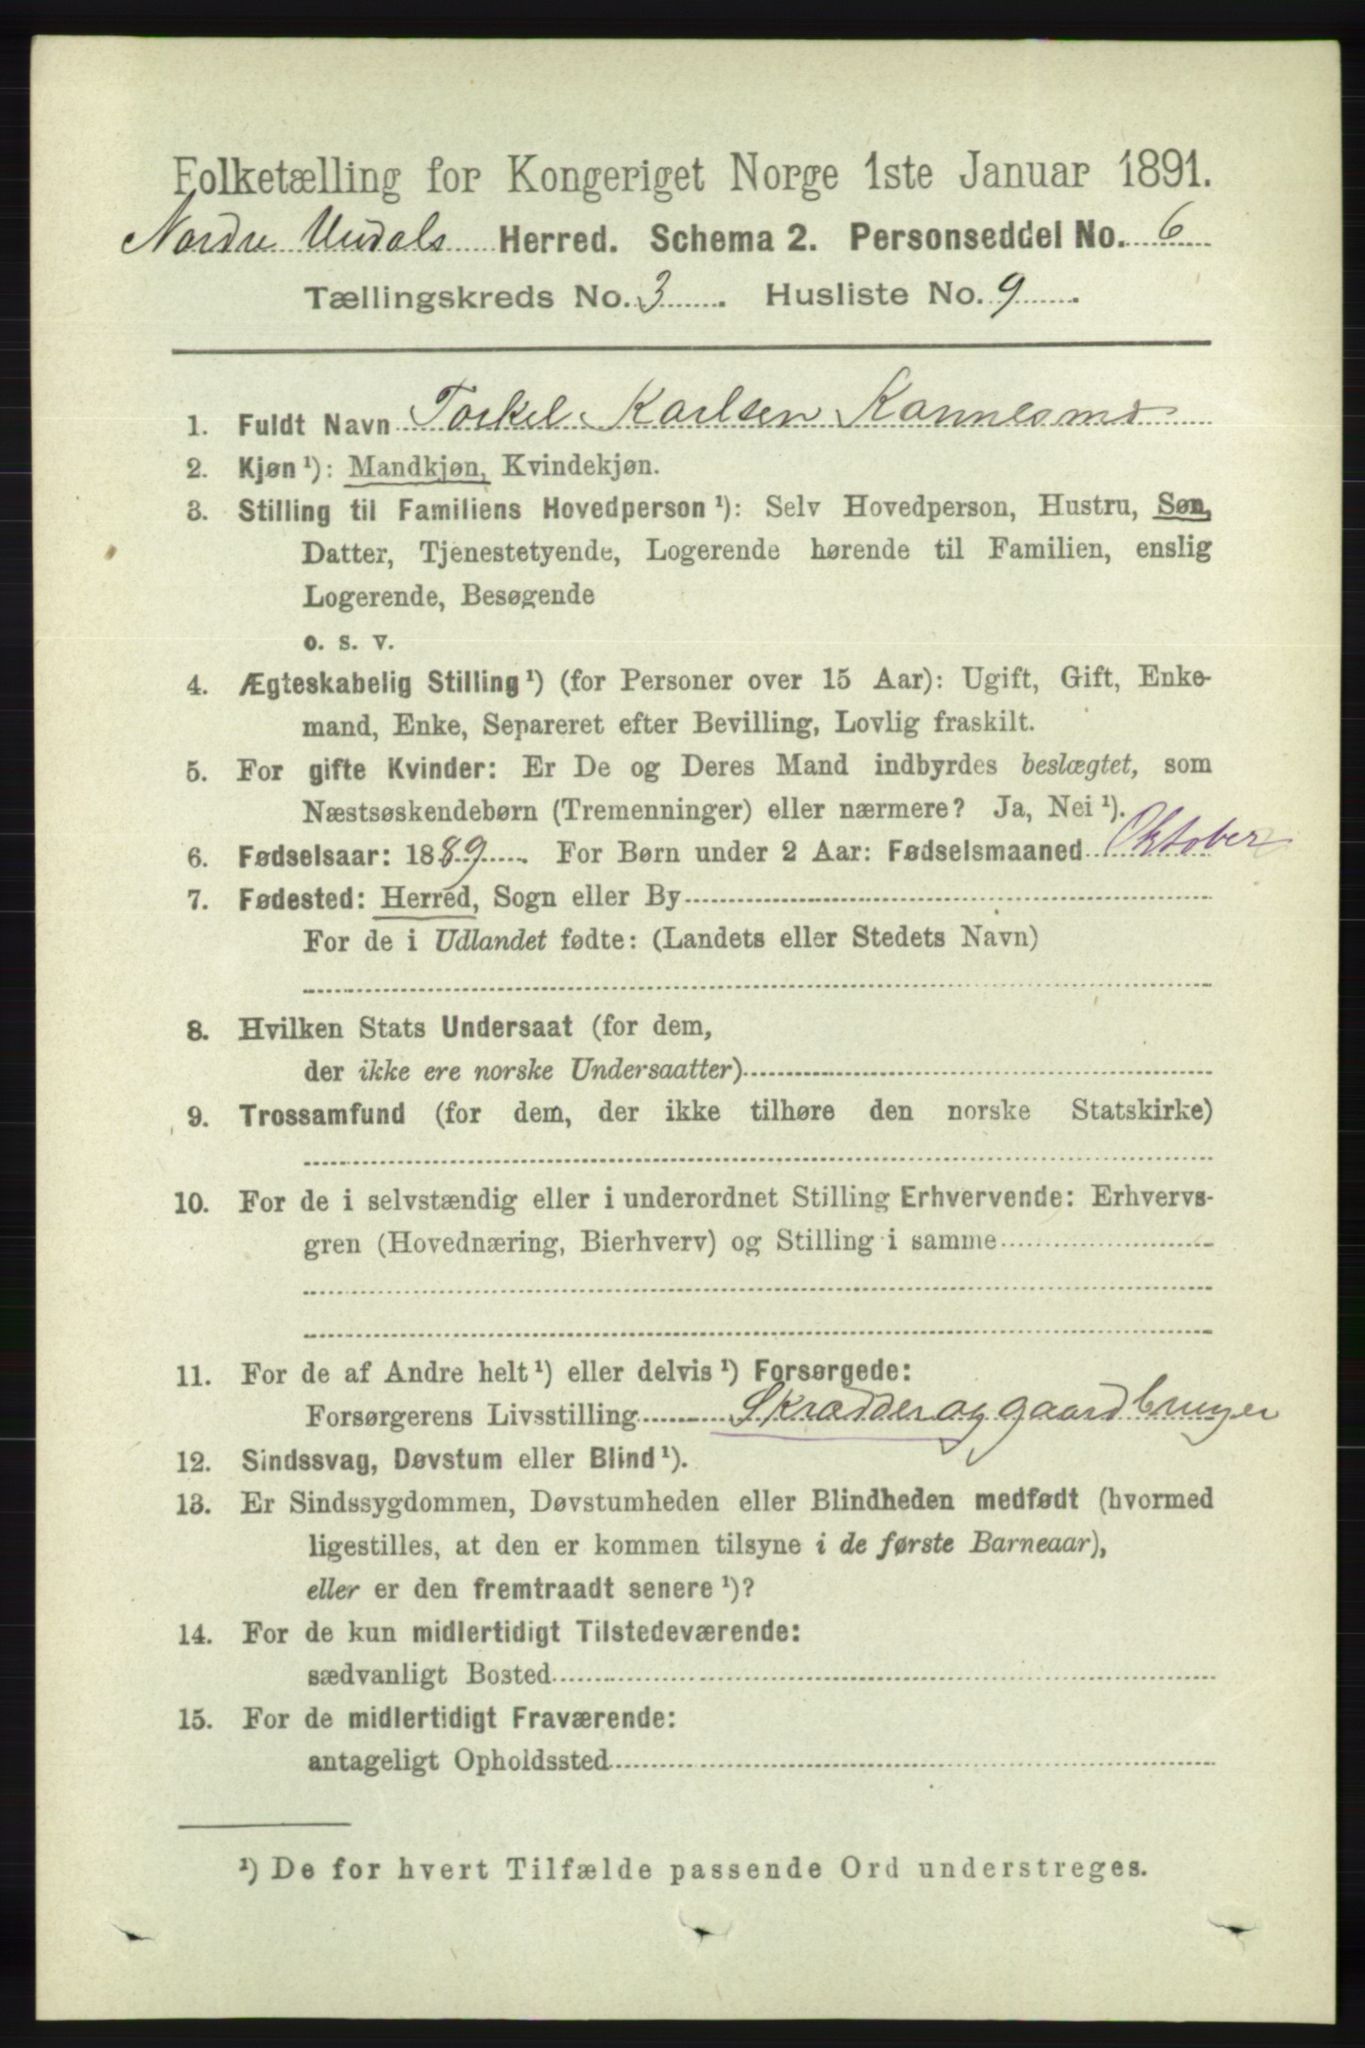 Folketælling for Kongeriget Norge 1ste Januar 1891.
Nordre Undals Herred. Schema 2. Personseddel No. 6
Tællingskreds No. 3. Husliste No. 9.
1. Fuldt Navn Torkel Karlsen
2. Kjøn ¹): Mandkjøn, Kvindekjøn.
3. Stilling til Familiens Hovedperson ¹): Selv Hovedperson, Hustru, Søn,
Datter, Tjenestetyende, Logerende hørende til Familien, enslig
Logerende, Besøgende
o. s. v.
4. Ægteskabelig Stilling ¹) (for Personer over 15 Aar): Ugift, Gift, Enke-
mand, Enke, Separeret efter Bevilling, Lovlig fraskilt.
5. For gifte Kvinder: Er De og Deres Mand indbyrdes beslægtet, som
Næstsøskendebørn (Tremenninger) eller nærmere? Ja, Nei ¹).
6. Fødselsaar: 1889. For Børn under 2 Aar: Fødselsmaaned Oktober
7. Fødested: Herred, Sogn eller By
For de i Udlandet fødte: (Landets eller Stedets Navn)
8. Hvilken Stats Undersaat (for dem,
der ikke ere norske Undersaatter)
9. Trossamfund (for dem, der ikke tilhøre den norske Statskirke)
10. For de i selvstændig eller i underordnet Stilling Erhvervende: Erhvervs-
gren (Hovednæring, Bierhverv) og Stilling i samme
11. For de af Andre helt ¹) eller delvis ¹) Forsørgede:
Forsørgerens Livsstilling Skrædder og gaardbruger
12. Sindssvag, Døvstum eller Blind ¹).
13. Er Sindssygdommen, Døvstumheden eller Blindheden medfødt (hvormed
ligestilles, at den er kommen tilsyne i de første Barneaar),
eller er den fremtraadt senere ¹)?
14. For de kun midlertidigt Tilstedeværende:
sædvanligt Bosted
15. For de midlertidigt Fraværende:
antageligt Opholdssted
¹) De for hvert Tilfælde passende Ord understreges.